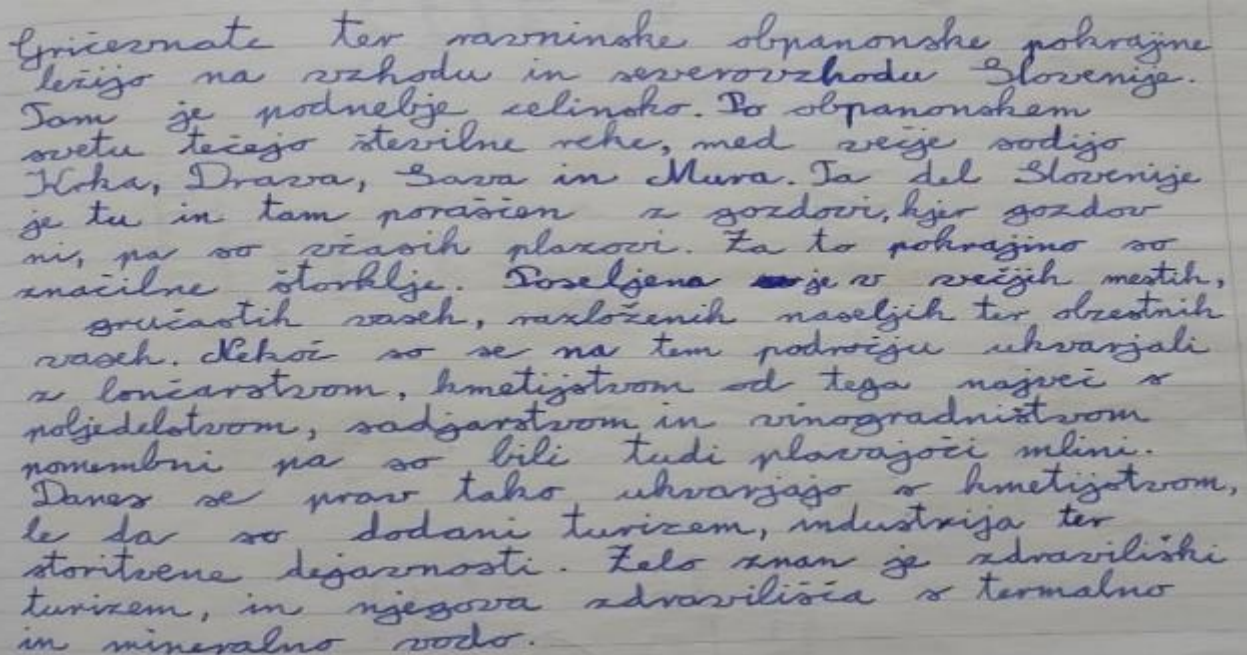 Gričevnate ter ravninske obpanonske pokrajine
ležijo na vzhodu in severovzhodu Slovenije.
Tam je podnebje celinsko. Po obpanonskem
svetu tečejo številne reke, med večje sodijo
Krka, Drava, Sava in Mura. Ta del Slovenije
je tu in tam poraščen z gozdovi, kjer gozdov
ni, pa so včasih plazovi. Za to pokrajino so
značilne štorklje. Poseljena je v večjih mestih,
gručastih vaseh, razloženih naseljih ter obcestnih
vaseh. Nekoč so se na tem področju ukvarjali
z lončarstvom, kmetijstvom od tega največ s
poljedelstvom, sadjarstvom in vinogradništvom
pomembni pa so bili tudi plavajoči mlini.
Danes se prav tako ukvarjajo s kmetijstvom,
le da so dodani turizem, industrija ter
storitvene dejavnosti. Zelo znan je zdraviliški
turizem, in njegova zdravilišča s termalno
in mineralno vodo.